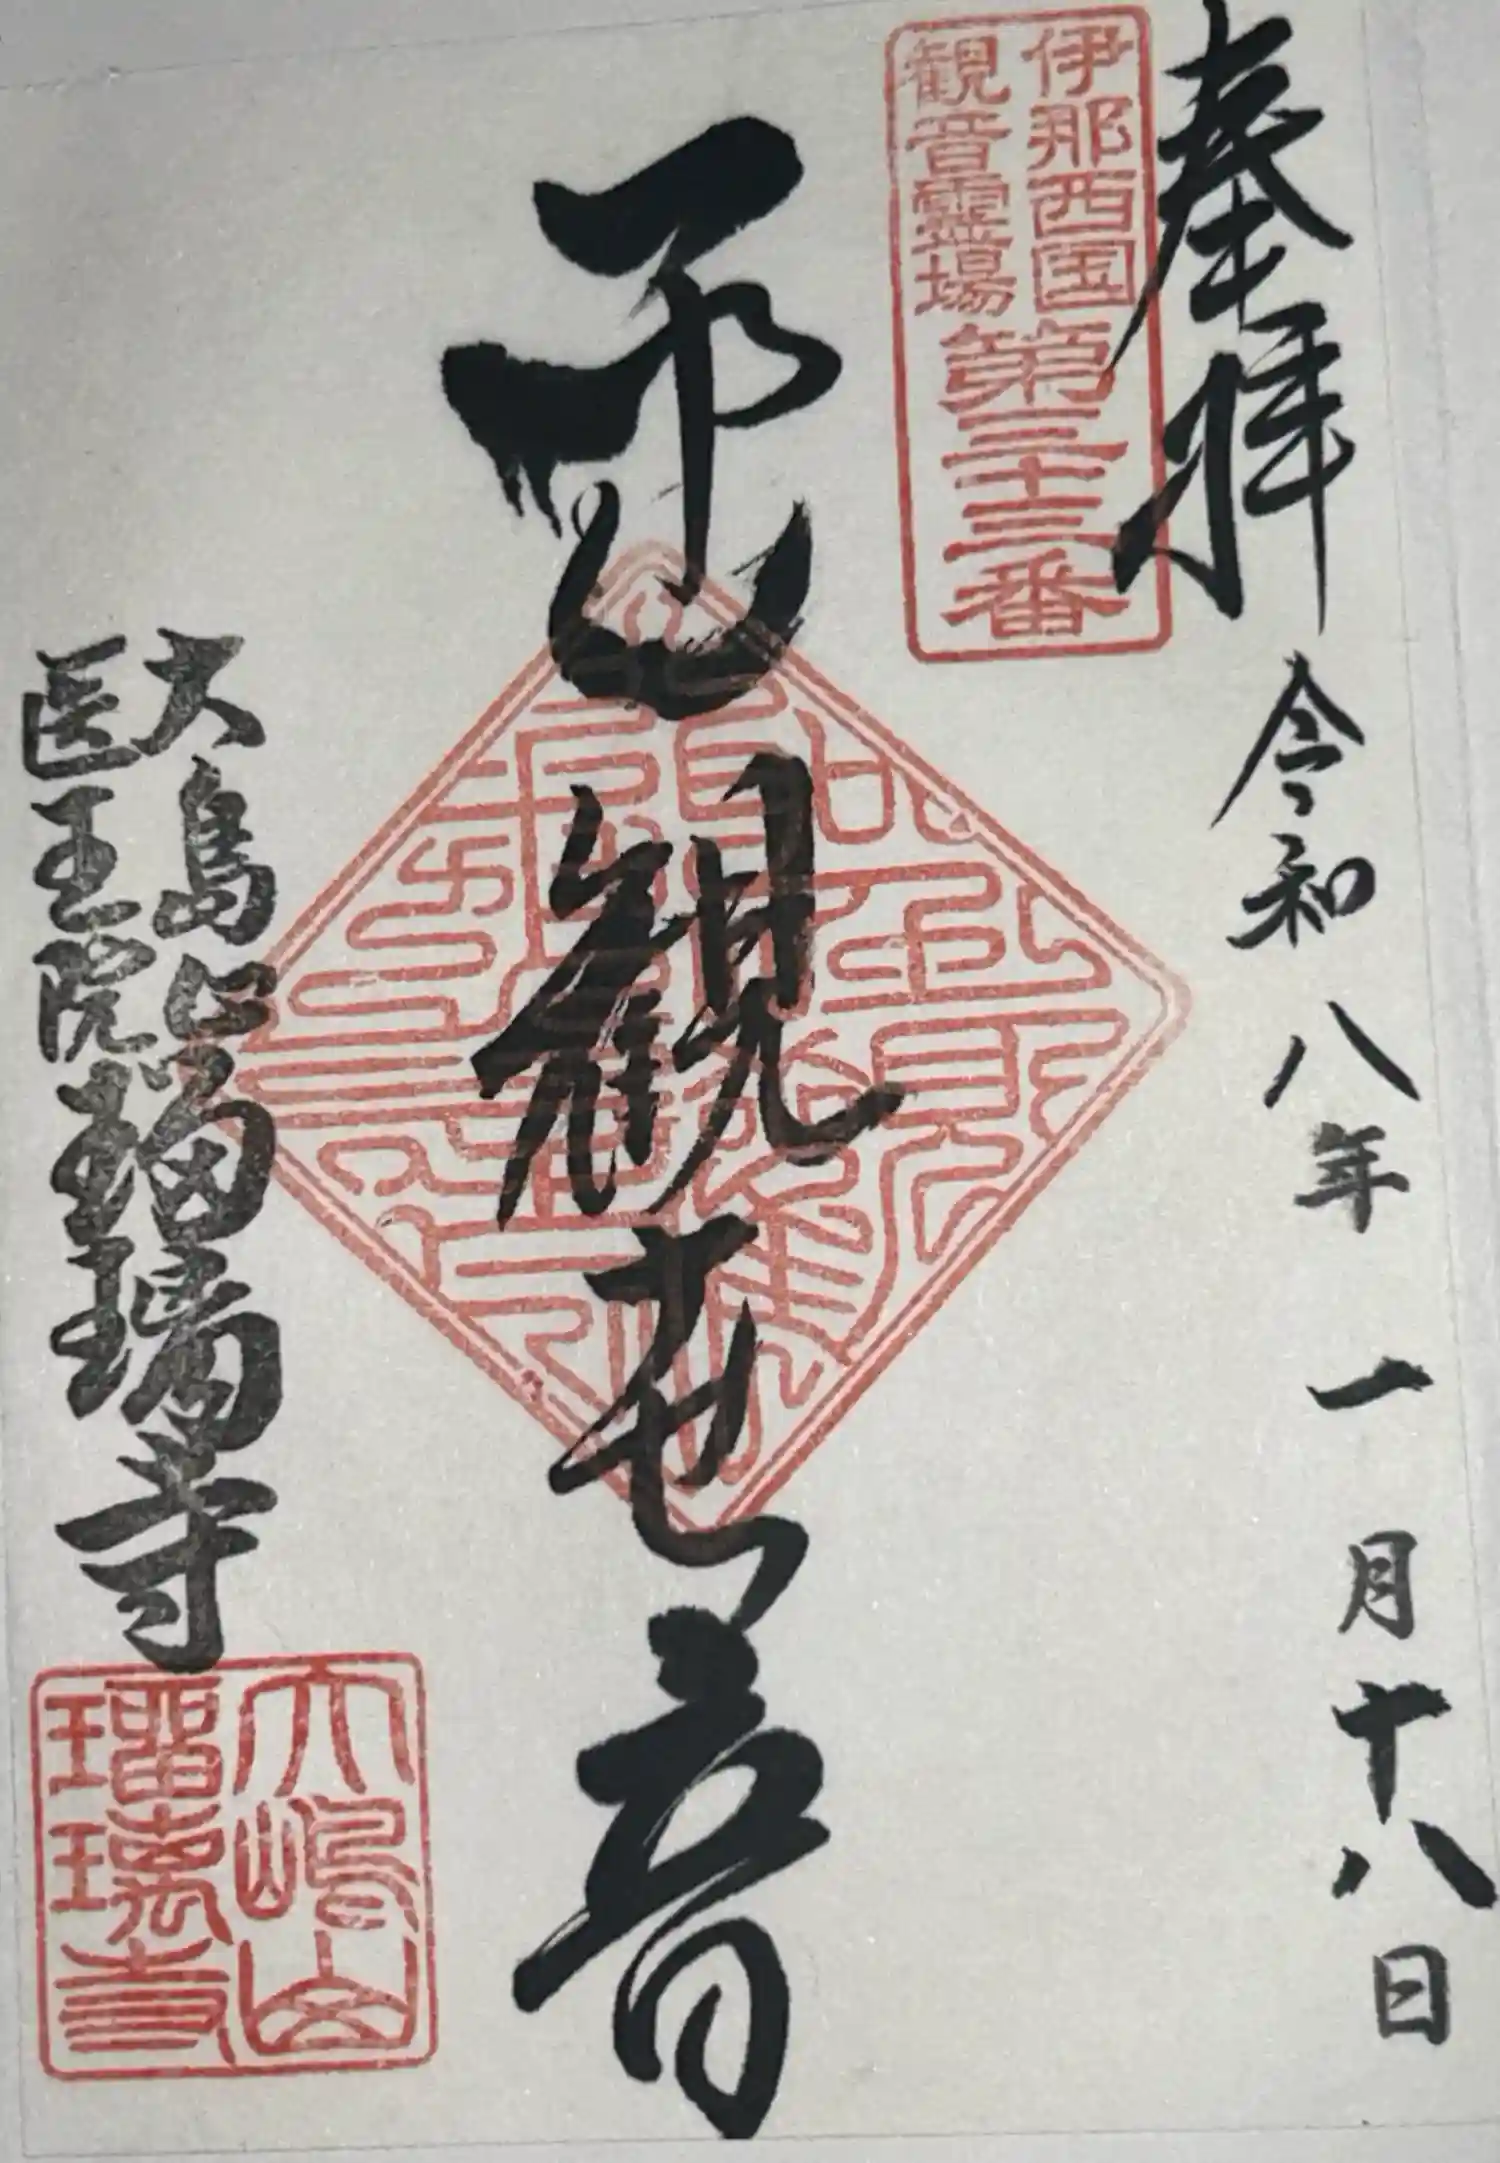 奉拝 令和八年一月十八日
伊那西国
観音霊場
第三十三番
観世音
大島山
医王院
瑠璃寺
大嶋山
瑠璃寺